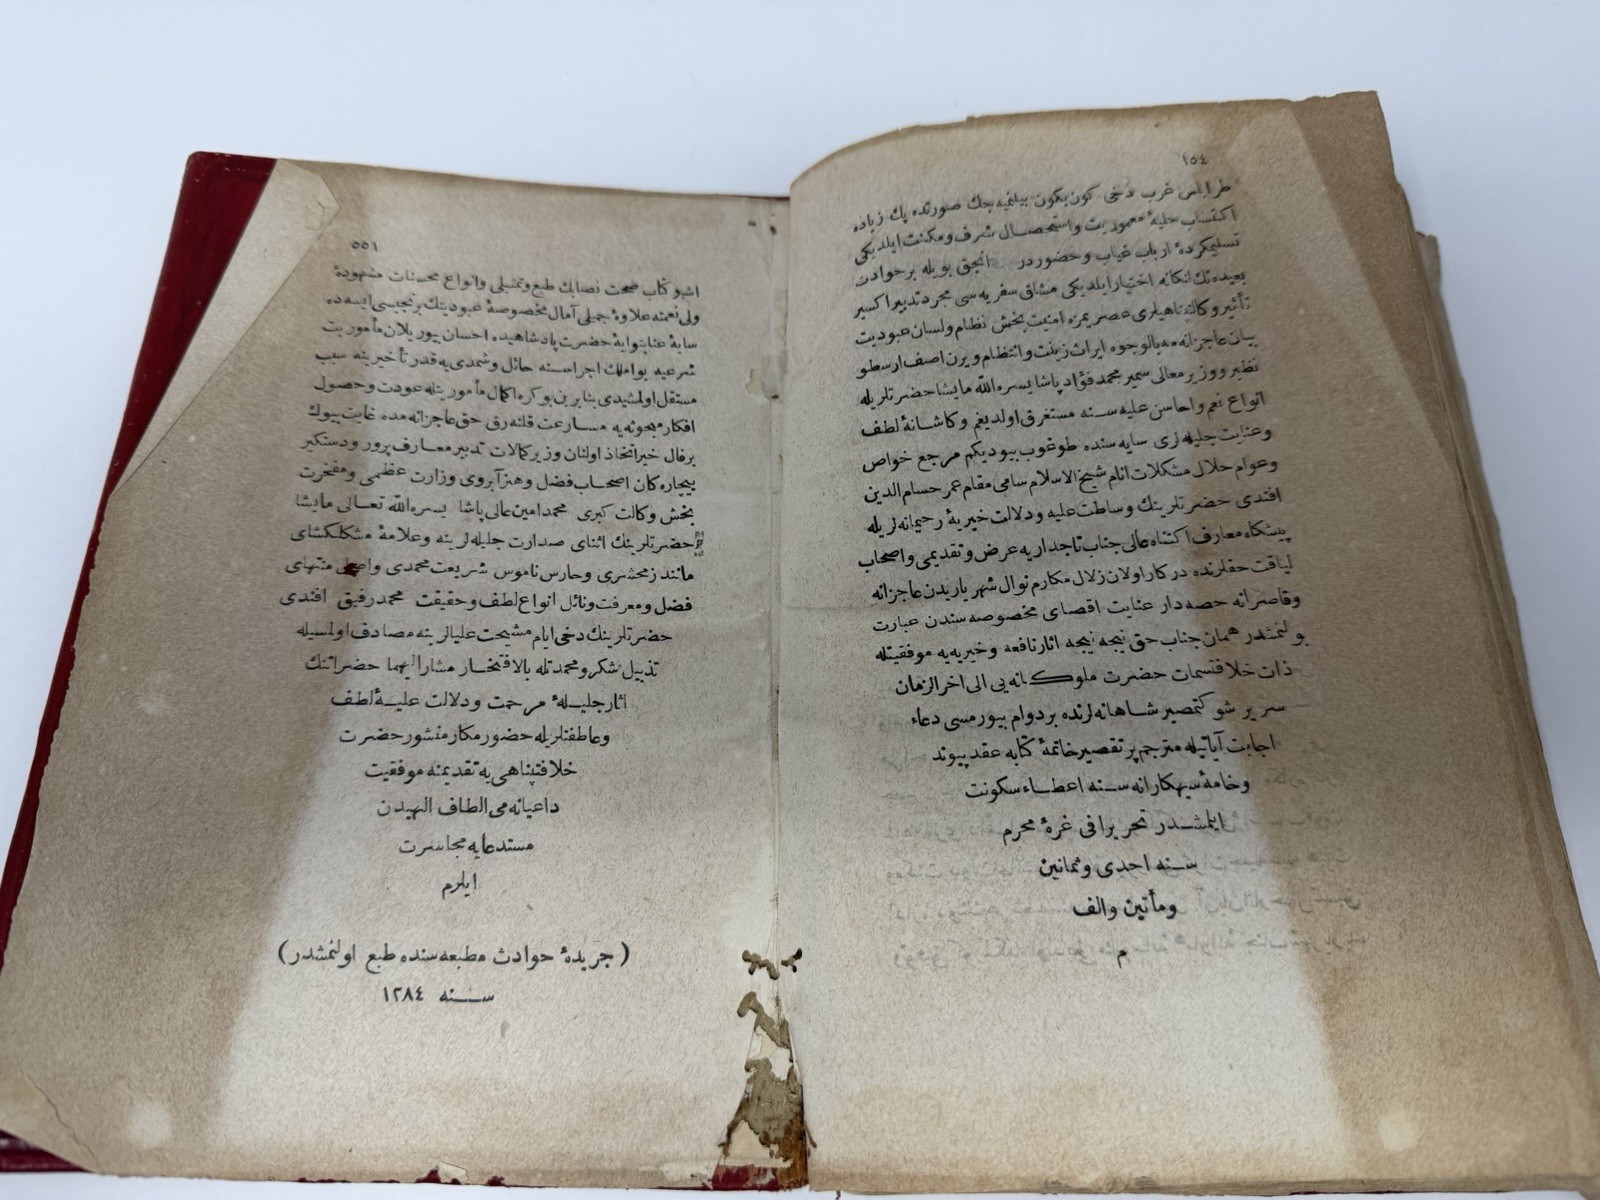 ١٥٤
طرابلس غرب دخی کون بکون بیلنمیه جك صورتده پك زیاده
اکتساب حلیۀ معموریت واستحصال شرف ومکنت ایلدیکی
تسلیمکردۀ ارباب غیاب وحضوردر انجق بویله برحوادث
بعیده نك انکانه اختیار ایلدیکی مشاق سفریه سی مجرد تدبیر اکسیر
تأثیر وکالتناهیلری عصریمزه امنیت بخش نظام ولسان عبودیت
بیان عاجزانه مه بالوجوه ایراث زینت وانتظام ویرن اصف ارسطو
نظیر ووزیر معالی سمیر محمد فؤاد پاشا یسره الله مایشا حضرتلریله
انواع نعم واحاسن علیه سنه مستغرق اولدیغم وکاشانۀ لطف
وعنایت جلیله لری سایه سنده طوغوب بیودیکم مرجع خواص
وعوام حلال مشکلات انام شیخ الاسلام سامی مقام عمر حسام الدین
افندی حضرتلرینك وساطت علیه ودلالت خیریۀ رحیمانه لریله
پیشکاه معارف اکتناه عالی جناب تاجداری یه عرض وتقدیمی واصحاب
لیاقت حقلرنده درکار اولان زلال مکارم نوال شهریاریدن عاجزانه
وقاصرانه حصه دار عنایت اقصای مخصوصه سندن عبارت
بولنمشدر همان جناب حق نیجه نیجه اثار نافعه وخیریه یه موفقیتله
ذات خلافتسمات حضرت ملوکانه یی الی اخر الزمان
سریر شوکتمصیر شاهانه لرنده بردوام بیورمسی دعاء
اجابت آیاتیله مترجم پرتقصیر خاتمۀ کتابه عقد پیوند
وخامۀ سیهکارانه سنه اعطاء سکونت
ایلمشدر تحریرا فی غرۀ محرم
سنه احدی وثمانین
ومأتین والف
م
٥٥١
اشبو کتاب صحت نصابك طبع وتمثیلی وانواع محسنات مشهودۀ
ولی نعمته علاوۀ جمیلی آمال مخصوصۀ عبودیتك برنجیسی ایسه ده
سایۀ عنایتوایۀ حضرت پادشاهیده احسان بیوریلان مأموریت
شرعیه بو املك اجراسنه حائل وشمدی یه قدر تأخیرینه سبب
مستقل اولمشیدی بنابرین بو کره اکمال مأموریتله عودت وحصول
افکار مبحوثه یه مسارعت قلنه رق حق عاجزانه مده غایت بیوك
برفال خیر اتخاذ اولنان وزیر کمالات تدبیر معارف پرور ودستکیر
بیچاره کان اصحاب فضل وهنر آبروی وزارت عظمی ومفخرت
بخش وکالت کبری محمد امین عالی پاشا یسره الله تعالی مایشا
حضرتلرینك اثنای صدارت جلیله لرینه وعلامۀ مشکلکشای
مانند زمخشری وحارس ناموس شریعت محمدی واصل منتهای
فضل ومعرفت ونائل انواع لطف وحقیقت محمد رفیق افندی
حضرتلرینك دخی ایام مشیحت علیالرینه مصادف اولمسیله
تذییل شکر ومحمدتله بالافتخار مشار الیهما حضراتنك
اثار جلیلۀ مرحمت ودلالت علیۀ لطف
وعاطفتلریله حضور مکارمنشور حضرت
خلافتپناهی یه تقدیمنه موفقیت
داعیانه می الطاف الهیدن
مستدعایه مجاسرت
ایلرم
( جریدۀ حوادث مطبعه سنده طبع اولنمشدر )
سنه ١٢٨٤